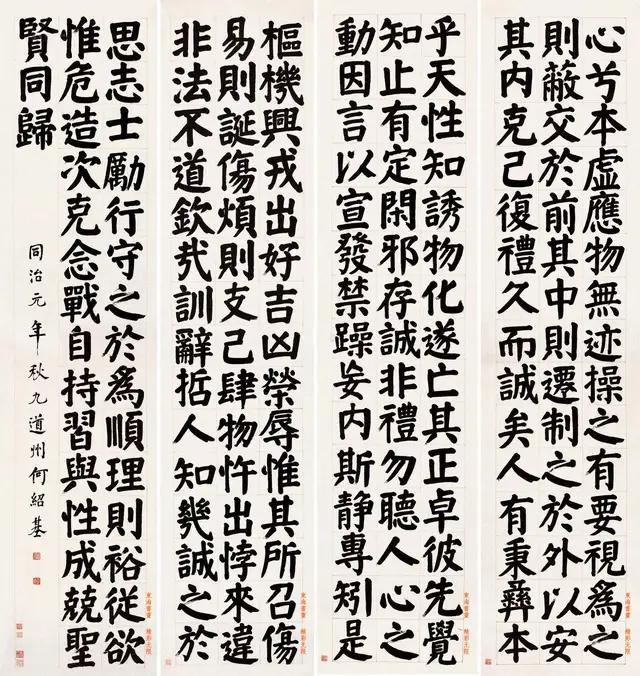 心兮本虛應物無迹操之有要視爲之
則蔽交於前其中則遷制之於外以安
其内克己復禮久而誠矣人有秉彝本
乎天性知誘物化遂亡其正卓彼先覺
知止有定閑邪存誠非禮勿聽人心之
動因言以宣發禁躁妄内斯静專矧是
樞機興戎出好吉凶榮辱惟其所召傷
易則誕傷煩則支己肆物忤出悖來違
非法不道欽哉訓辭哲人知幾誠之於
思志士勵行守之於爲順理則裕從欲
惟危造次克念戰自持習與性成兢聖
賢同歸
同治元年秋九道州何紹基